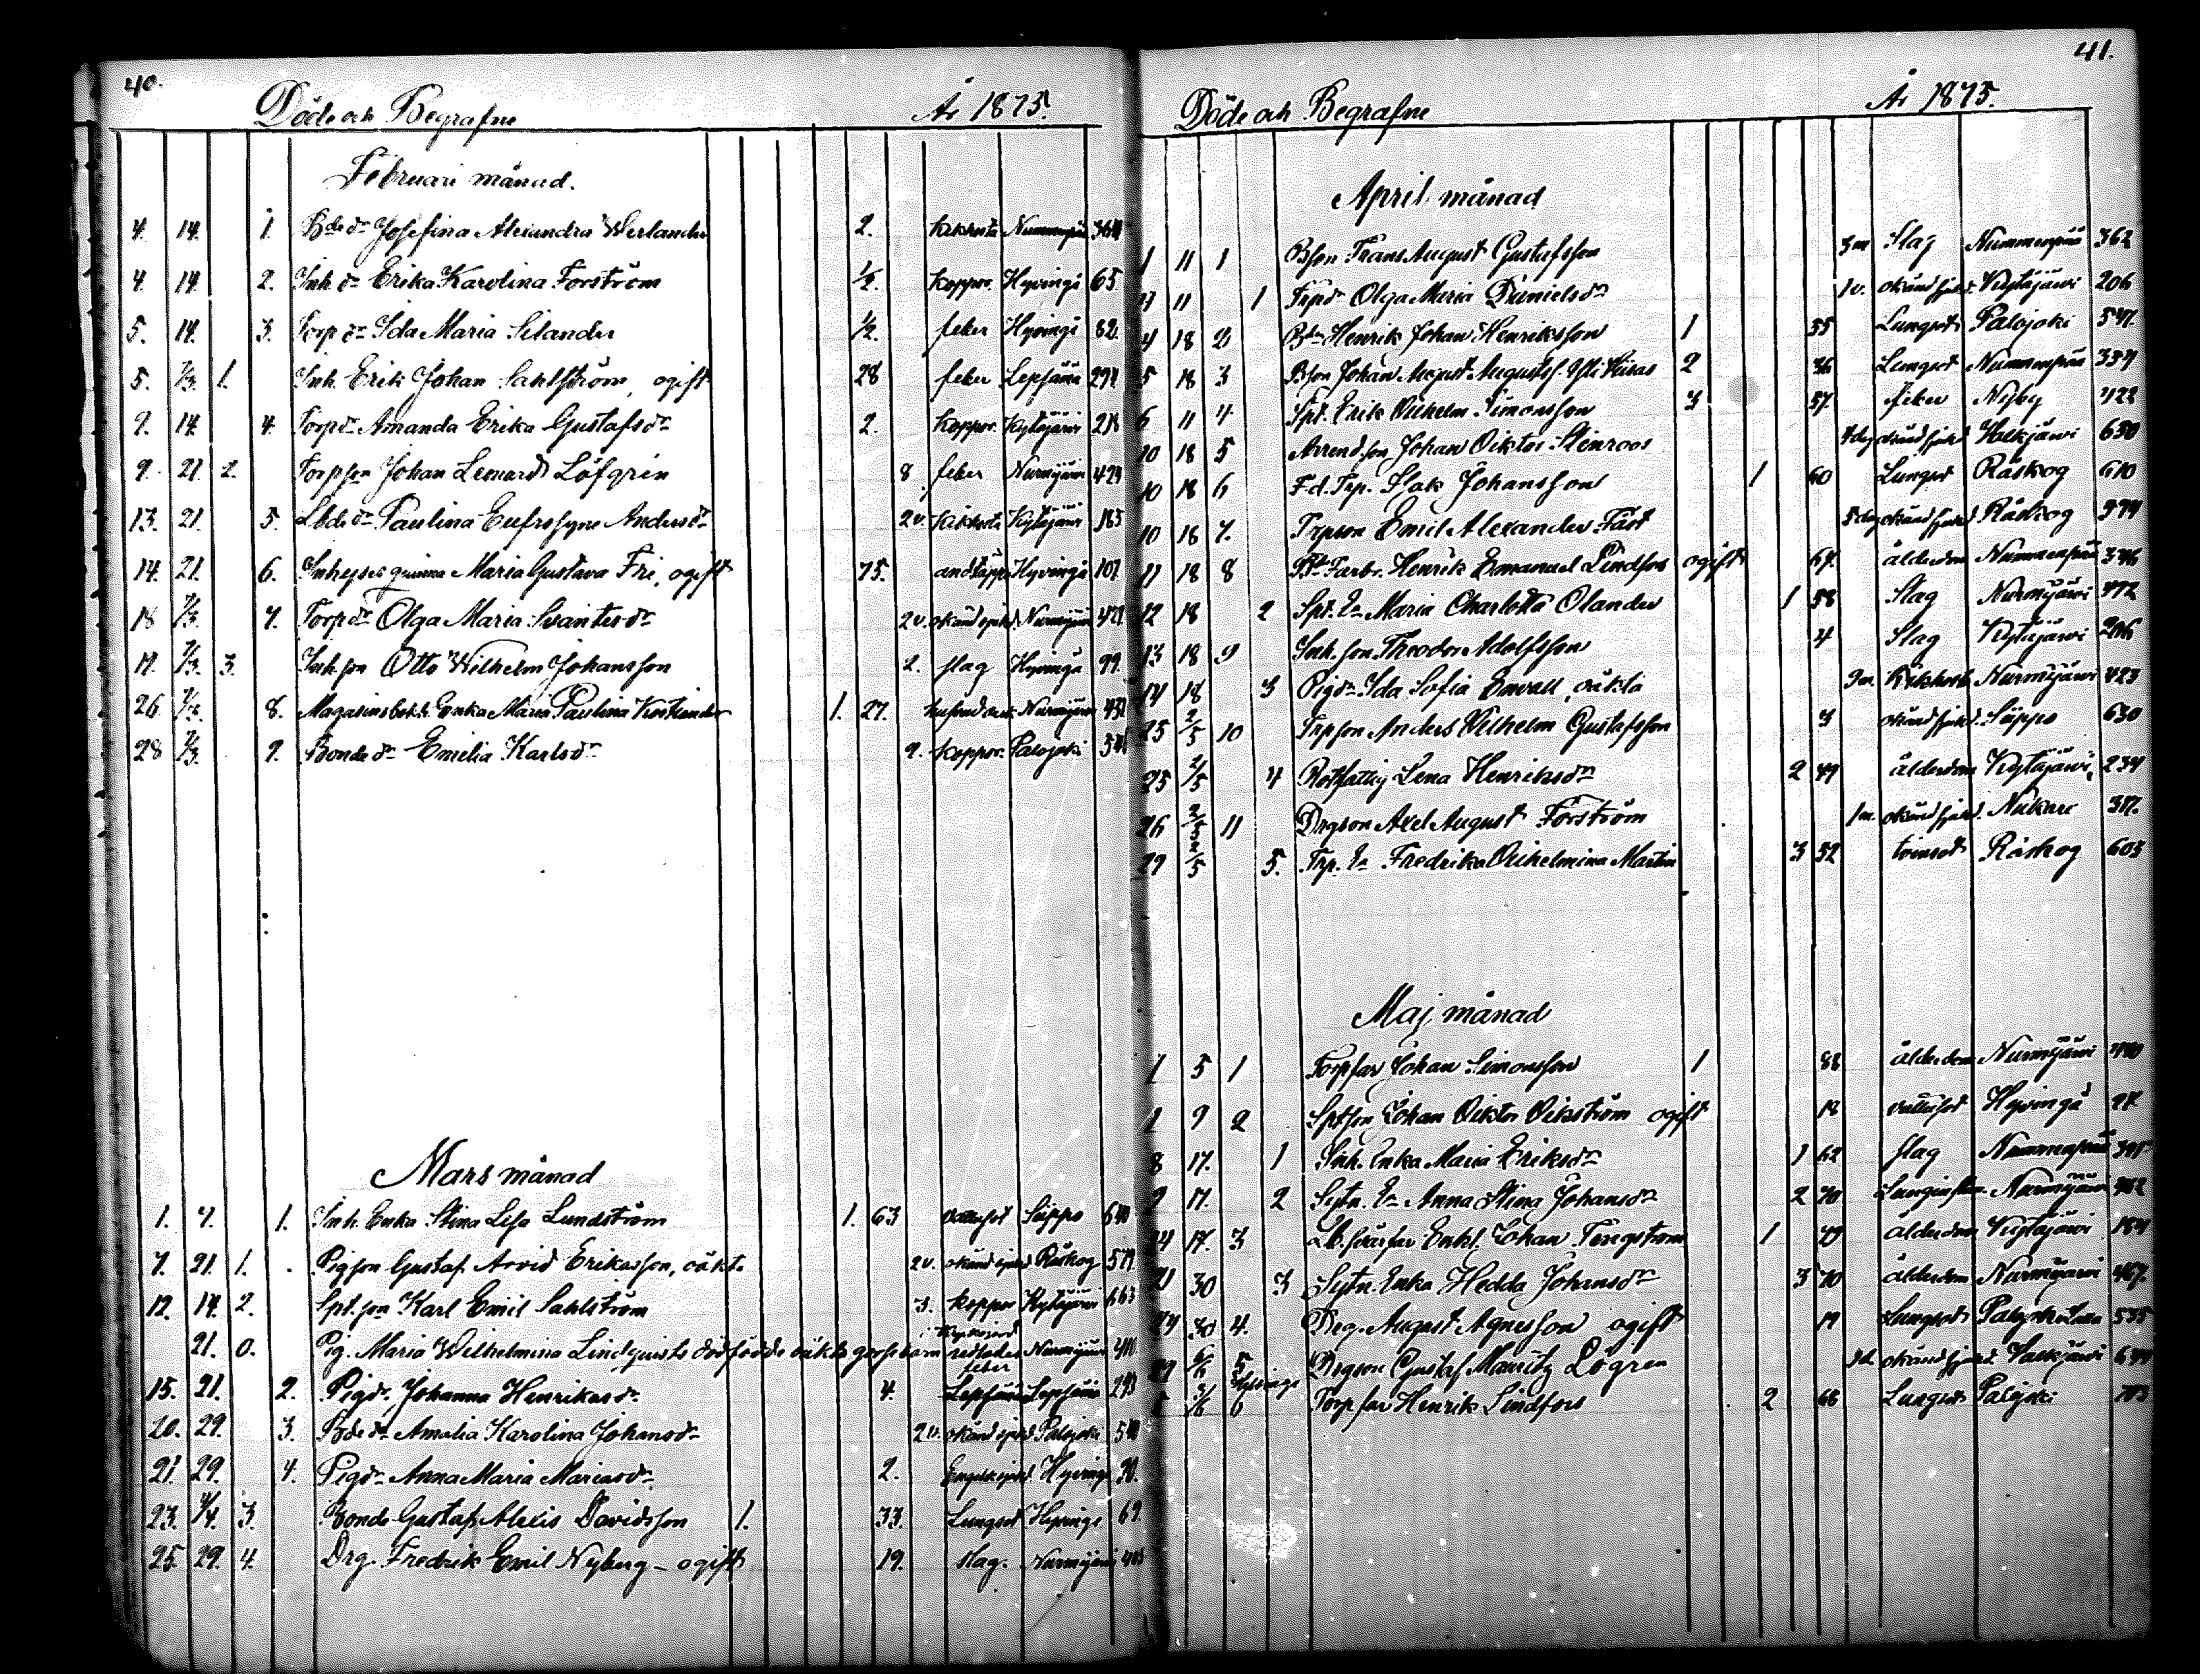 40.
Döde och Begrafne År 1875.
Februari månad.
4. 14. 1. Bde dr Josefina Alexandra Werlander 2. Kikhosta Nummenpää 364
4. 14. 2. Inh. dr Erika Karolina Forström ½. Koppor. Hyvinge 65
5. 14. 3. Torp dr Ida Maria Silander ½. feber Hyvinge 82.
5. 7/3. 1. Inh. Erik Johan Sahlström, ogift 28 feber Lepsämä 294
9. 14. 4. Torp dr Amanda Erika Gustafsdr 2. Koppor. Kytäjärvi 218
9. 21. 2. Torpson Johan Leonard Löfgrén 8. feber Nurmijärvi 429
13. 21. 5. Lbde dr Paulina Eufrosyne Andersdr 2 v. Kikhosta Kytäjärvi 185
14. 21. 6. Inhyses qvinna Maria Gustava Fri, ogift 75. andtäppa Hyvinge 107.
18 7/3. 7. Torp dr Olga Maria Svantesdr 2 v. okänd sjukd. Nurmijärvi 421
17. 7/3. 3. Inh. son Otto Wilhelm Johansson 2. slag Hyvinge 99.
26. 7/3. 8. Magasinsbokh. Enka Maria Paulina 1. 27. Nurmijärvi 431
28 7/3. 9. Bonde dr Emilia Karlsdr 9. Koppor. Palojoki
Mars månad
1. 7. 1. Inh. Enka Stina Lisa Lundström 1. 63 Vattusot Säppo 640
7. 21. 1. Pigson Gustaf Arvid Eriksson, oäkta 2 v. okänd sjukd Råskog 579
12. 14. 2. Spt. son Karl Emil Sahlström 3. Koppor Kytäjärvi 663
21. 0. Pig. Maria Wilhelmina Lindqvists dödfödde oäkta gossebarn Nurmijärvi
15. 21. 2. Pigdr, Johanna Henriksdr 4. feber Lepsämä Lepsämä 293
20. 29. 3. Bde dr Amalia Karolina Johansdr 2 v. okänd sjukd Palojoki
21. 29. 4. Pigdr Anna Maria Mariasdr 2. Engelsksjukd Hyvinge
23. 4/4. 3. Bonde Gustaf Alexis Davidsson 1. 33. Lungsot Hyvinge 69
25. 29. 4. Drg. Fredrik Emil Nyberg - ogift 19. slag. Nurmijärvi
41.
Döde och Begrafne År 1875.
April månad
1 11 1 Bson Frans August Gustafsson 3 m Slag Nummenpää 362
11 1 Trpdr Olga Maria Danielsdr 1 v. okänd sjukd. Kytäjärvi 206
4 18 2 Bde Henrik Johan Henriksson 1 55 Lungsot Palojoki 547.
5 18 3 Bson Johan August Augustss. 2 36 Lungsot Nummenpää 354
6 11 4 Spt. Erik Vilhelm Simonsson 3 57. feber Nyby 422
10 18 5 Arrend.son Johan Viktor Stenroos okänd sjukd Valkjärvi 650
10 18 6 F.d. Trp. Isak Johansson 1 60 Lungsot Råskog 610
10 18 7. Trpson Emil Alexander Fast okänd sjukd Råskog 579
11 18 8 Henrik Emanuel Lindfors ogift 67. ålderdom Nummenpää 346
12 18 2 Spt. Ea Maria Charlotta Olander 1 58 Slag Nurmijärvi 472
13 18 9 Inh. son Theodor Adolfsson 4 Slag Kytäjärvi 206
14 18 3 Pigdr Ida Sofia Enwall, oäkta Kikhosta Nurmijärvi 423
25 2/5 10 Trpson Anders Vilhelm Gustafsson 3 okänd sjukd. Säppo 630
25 2/5 4 Rothattig Lena Henriksdr 2 49 ålderdom Kytäjärvi 234
26 2/5 11 Drgson Axel August Forström 1 m. okänd sjukd. Nukari 317.
29 2/5 5. Trp. Ea Fredrika Vilhelmina Martin 3 52 Råskog 603
Maj månad
1 5 1 Torpfar Johan Simonsson 1 88 ålderdom Nurmijärvi
1 9 2 Sptson Johan Viktor Vikström ogift 18 vattusot Hyvinge 27.
8 17. 1 Inh. Enka Maria Eriksdr 1 62 slag Nummenpää
9 17. 2 Sytn. Ea Anna Stina Johansdr 2 70 Nurmijärvi
14 17. 3 Lb. svärfar Enkl. Johan Tengström 1 49 ålderdom Kytäjärvi 184
21 30 3 Sytn. Enka Hedda Johansdr 3 70 ålderdom Nurmijärvi 467.
30 4. Drg. August Agnesson ogift 19 Lungsot Palojoki 535
6/6 5 Drgson Gustaf Mauritz Lögren okänd sjukd. Valkjärvi
6 Torpfar Henrik Lindfors 2 66 Lungsot Palojoki